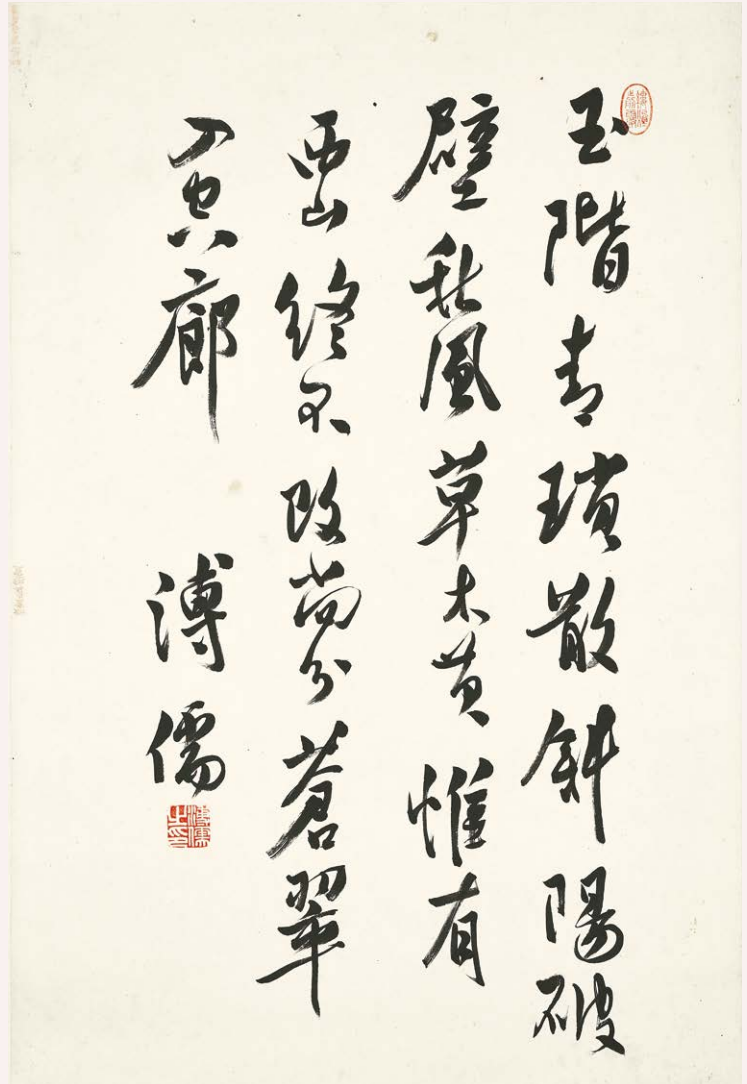 玉階青瑣散斜陽破
壁秋風草木黃惟有
西山終不改尚分蒼翠
入空廊 溥儒
溥儒之印